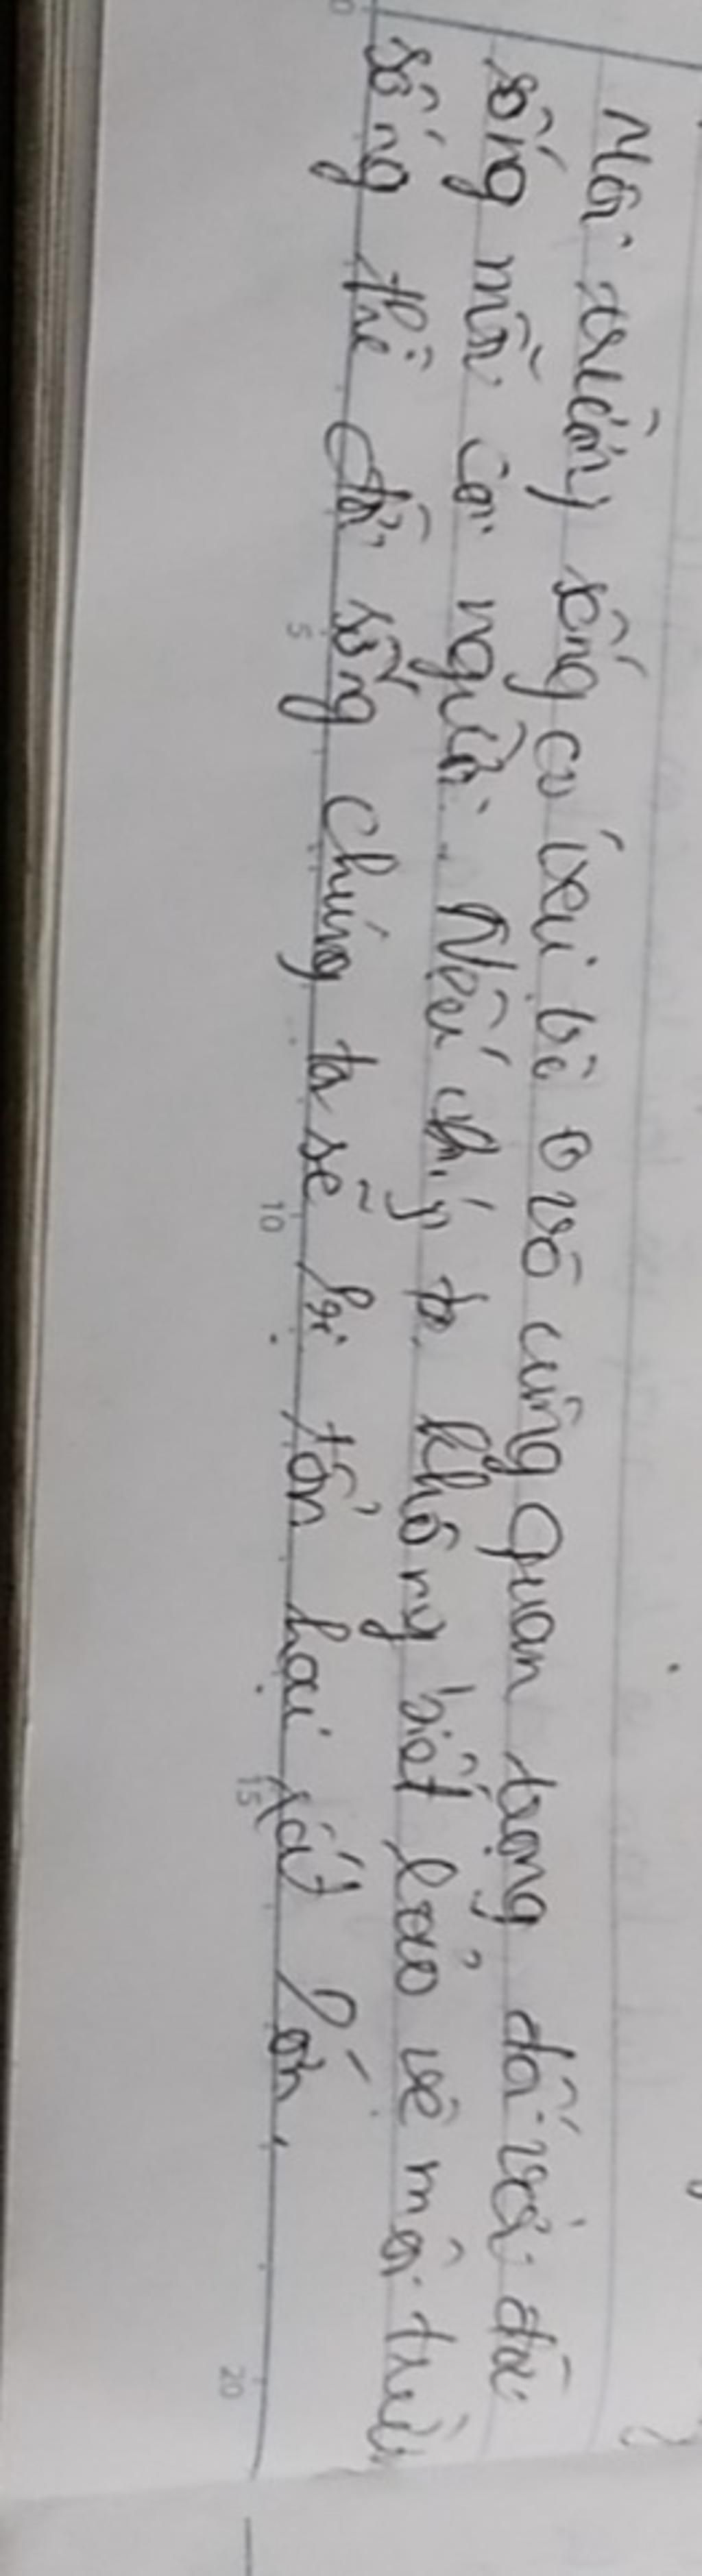 Môi trường sống có vai trò vô cùng quan trọng đối với đời
sống mỗi con người. Nếu chúng ta không biết bảo vệ môi trường
sống thì đời sống chúng ta sẽ bị tổn hại rất lớn.